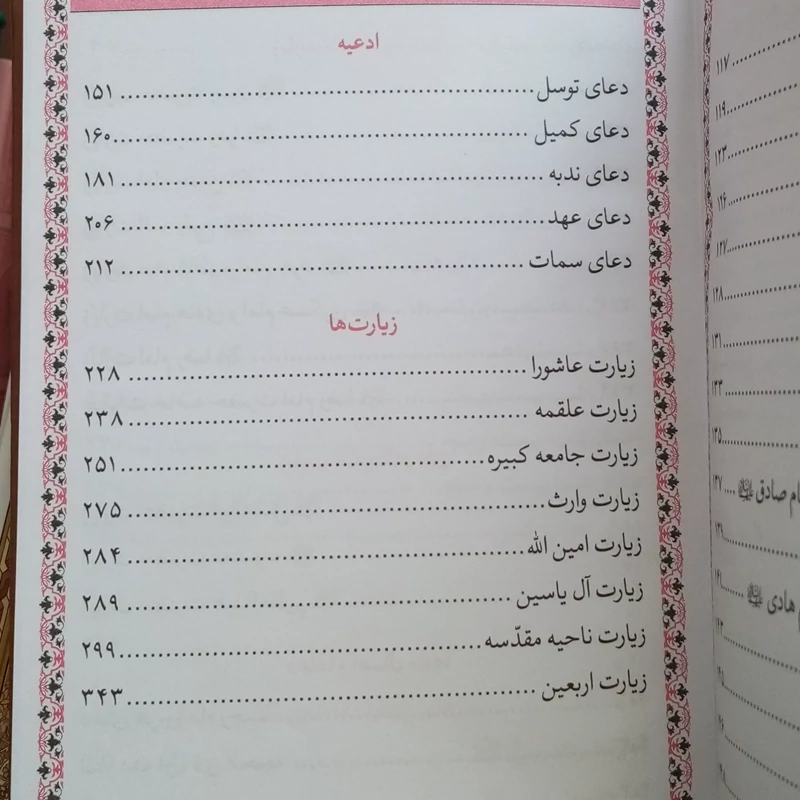 ادعیه
دعای توسل ........ ۱۵۱
دعای کمیل ........ ۱۶۰
دعای ندبه ........ ۱۸۱
دعای عهد ........ ۲۰۶
دعای سمات ........ ۲۱۲
زیارت‌ها
زیارت عاشورا ........ ۲۲۸
زیارت علقمه ........ ۲۳۸
زیارت جامعه کبیره ........ ۲۵۱
زیارت وارث ........ ۲۷۵
زیارت امین الله ........ ۲۸۴
زیارت آل یاسین ........ ۲۸۹
زیارت ناحیه مقدّسه ........ ۲۹۹
زیارت اربعین ........ ۳۴۳
۱۱۷
۱۱۹
۱۲۳
۱۲۶
۱۲۷
۱۲۸
۱۳۱
۱۳۳
۱۳۵
صادق ........ ۱۳۷
۱۳۹
هادی ........ ۱۴۱
۱۴۳
۱۴۵